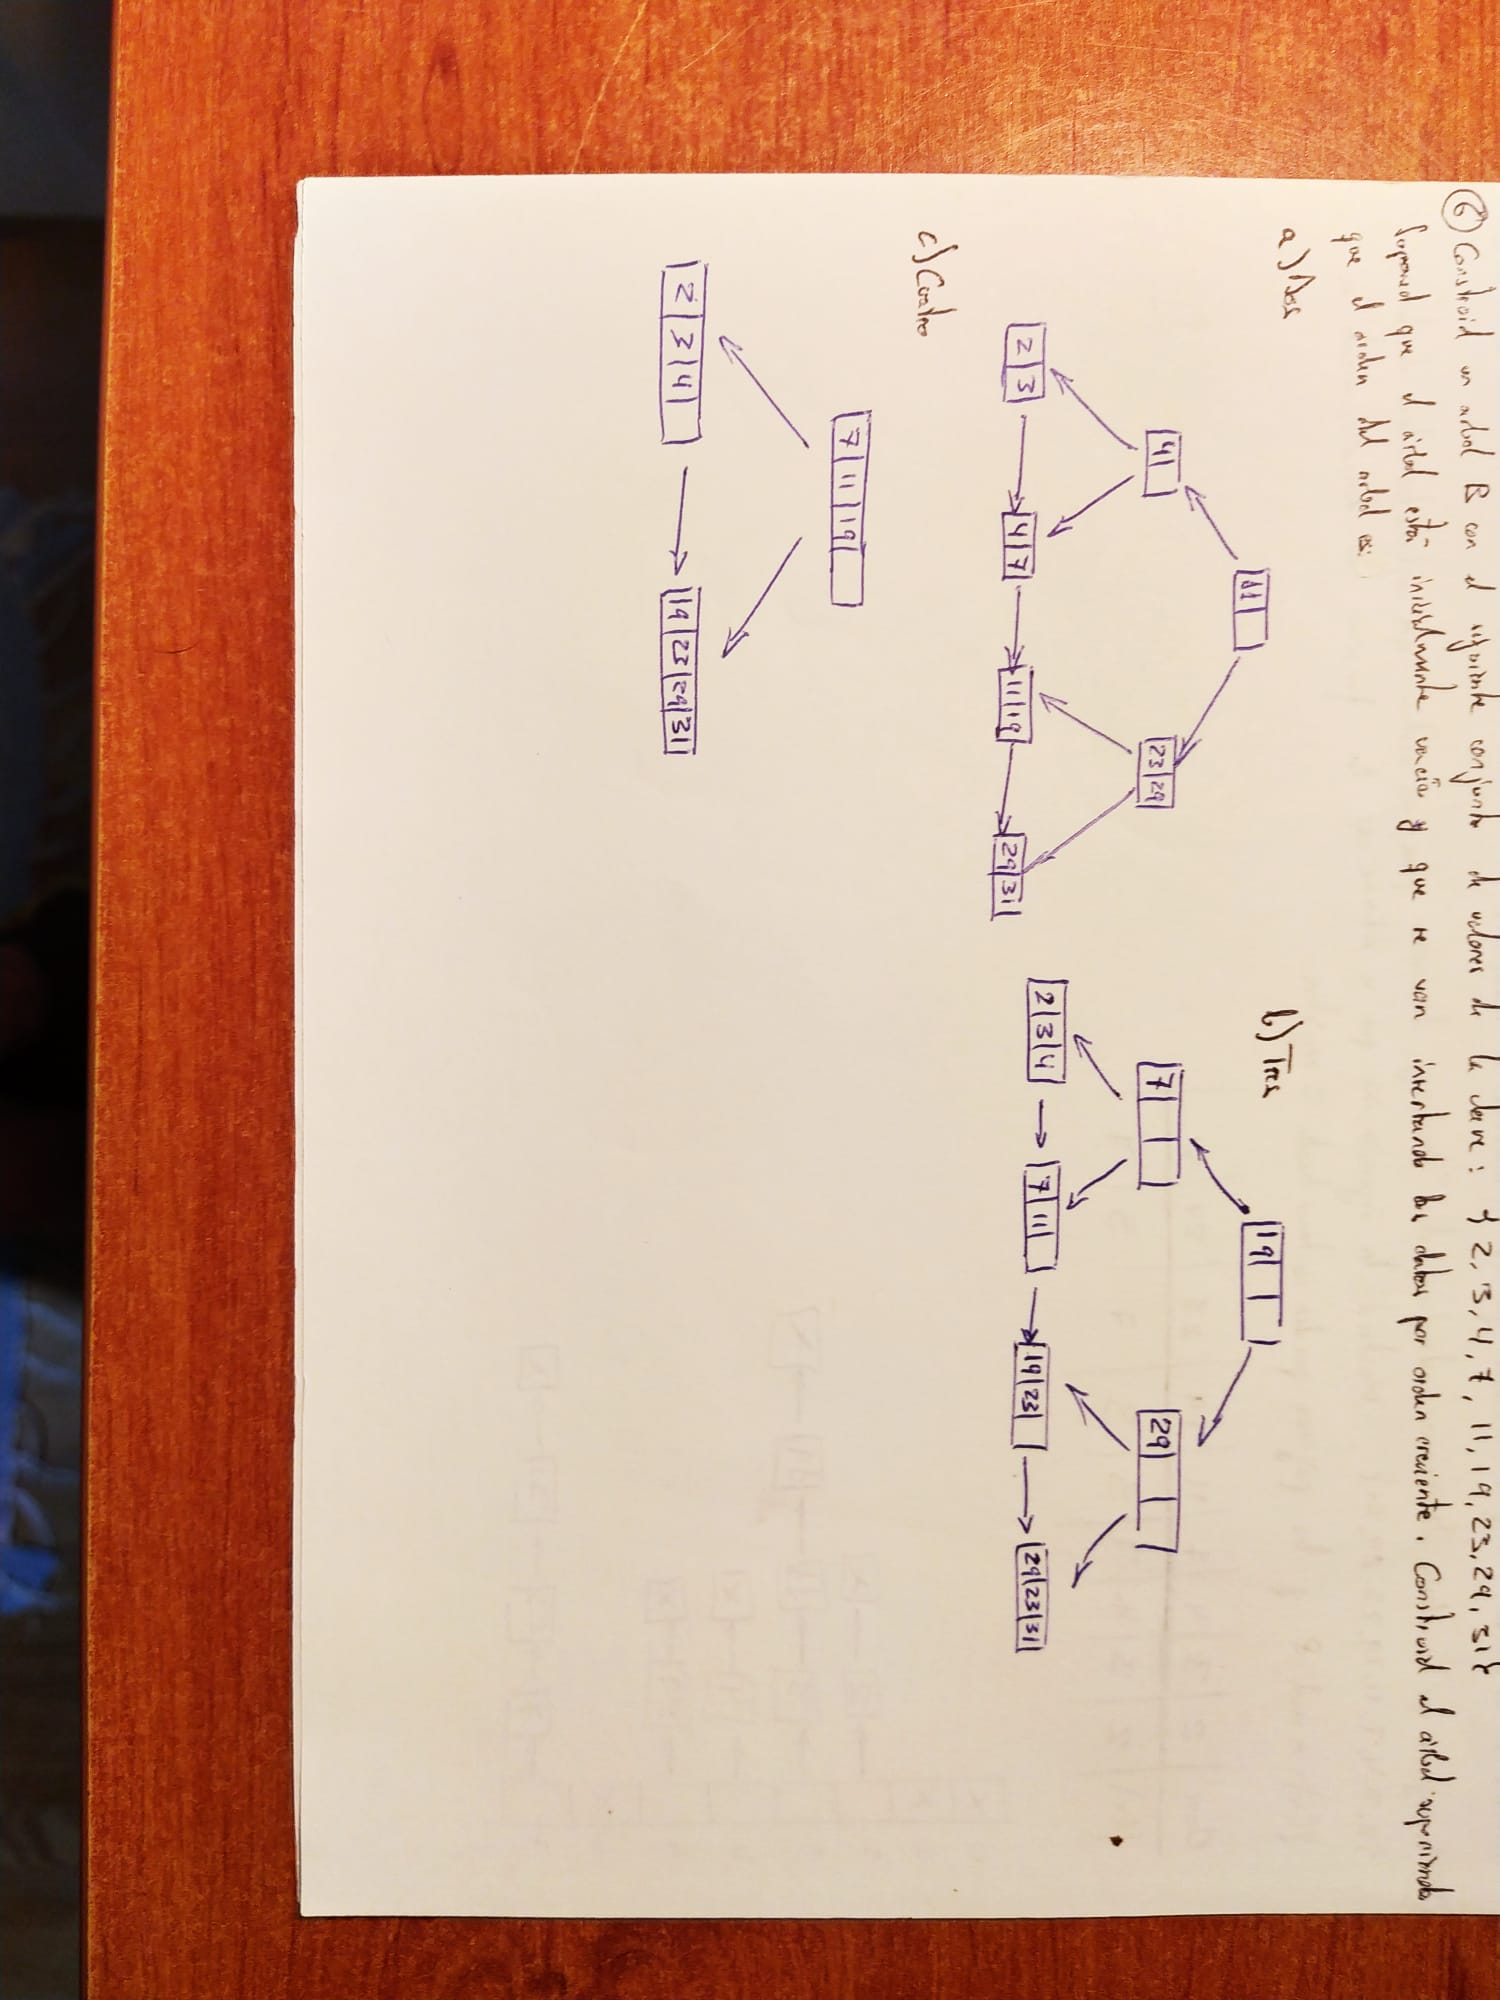 6 Construid un arbol B con el siguiente conjunto de valores de la clave: {2, 3, 4, 7, 11, 19, 23, 29, 31}
Suponed que el árbol está inicialmente vacío y que se van insertando los datos por orden creciente. Construid el árbol suponiendo
que el orden del arbol es:
a) Dos
b) Tres
11
19
4
23 29
7
29
2 3
4 7
11 19
29 31
2 3 4
7 11
19 23
29 23 31
c) Cuatro
7 11 19
2 3 4
19 23 29 31